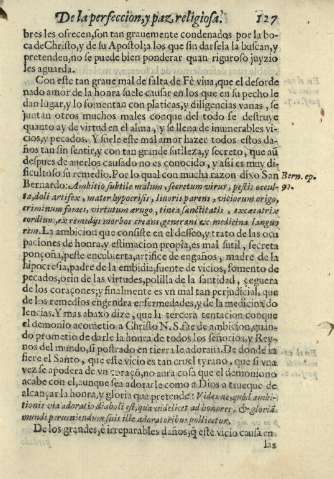 De la perfeccion, y paz, religiosa. 127
bres les ofrecen, son tan grauemente condenados por la bo-
ca de Christo, y de su Apostol; a los que sin darsela la buscan, y
pretenden, no se puede bien ponderar quan riguroso juyzio
les aguarda.
Con este tan graue mal de falta de Fè viua, que el desorde
nado amor de la honra suele causar en los que en su pecho le
dan lugar, y lo fomentan con platicas, y diligencias vanas, se
juntan otros muchos males conque del todo se destruye
quanto ay de virtud en el alma, y se llena de inumerables vi-
cios, y pecados. Y suele este mal amor hazer todos estos da-
ños tan sin sentir, y con tan grande sutileza, y secreto, que aũ
despues de auerlos causado no es conocido, y assi es muy di-
ficultoso su remedio. Por lo qual con mucha razon dixo San
Bernardo: Ambitio subtile malum, secretum virus, pestis occul-
Bern. ep.
ta, doli artifex, mater hypocrisis, liuoris parens, vitiorum origo,
criminum fomes, virtutum ærugo, tinea sanctitatis, excæcatrix
cordium, ex remedijs morbos creans, generans ex medicina languo
rem. La ambicion que consiste en el desseo, y trato de las ocu
paciones de honra, y estimacion propia, es mal sutil, secreta
ponçoña, peste encubierta, artifice de engaños, madre de la
hipocresia, padre de la embidia, fuente de vicios, fomento de
pecados, orin de las virtudes, polilla de la santidad, ceguera
de los coraçones; y finalmente es vn mal tan perjudicial, que
de los remedios engendra enfermedades, y de la medicina do
lencias. Y mas abaxo dize, que la tercera tentacion conque
el demonio acometio a Christo N. S. fue de ambicion, quan-
do prometio de darle la honra de todos los señorios, y Rey-
nos del mundo, si postrado en tierra le adoraua. De donde in
fiere el Santo, que este vicio es tan cruel tyrano, que si vna
vez se apodera de vn coraçõ, no aura cosa que el demonio no
acabe con el, aunque sea adorarle como a Dios a trueque de
alcançar la honra, y gloria que pretende: Vides ne, quòd ambi-
tionis via adoratio diaboli est, qua videlicet ad honores, & gloriã
mundi perueniendum suis ille adoratoribus pollicetur.
De los grandes, è irreparables daños, q̃ este vicio causa en
las